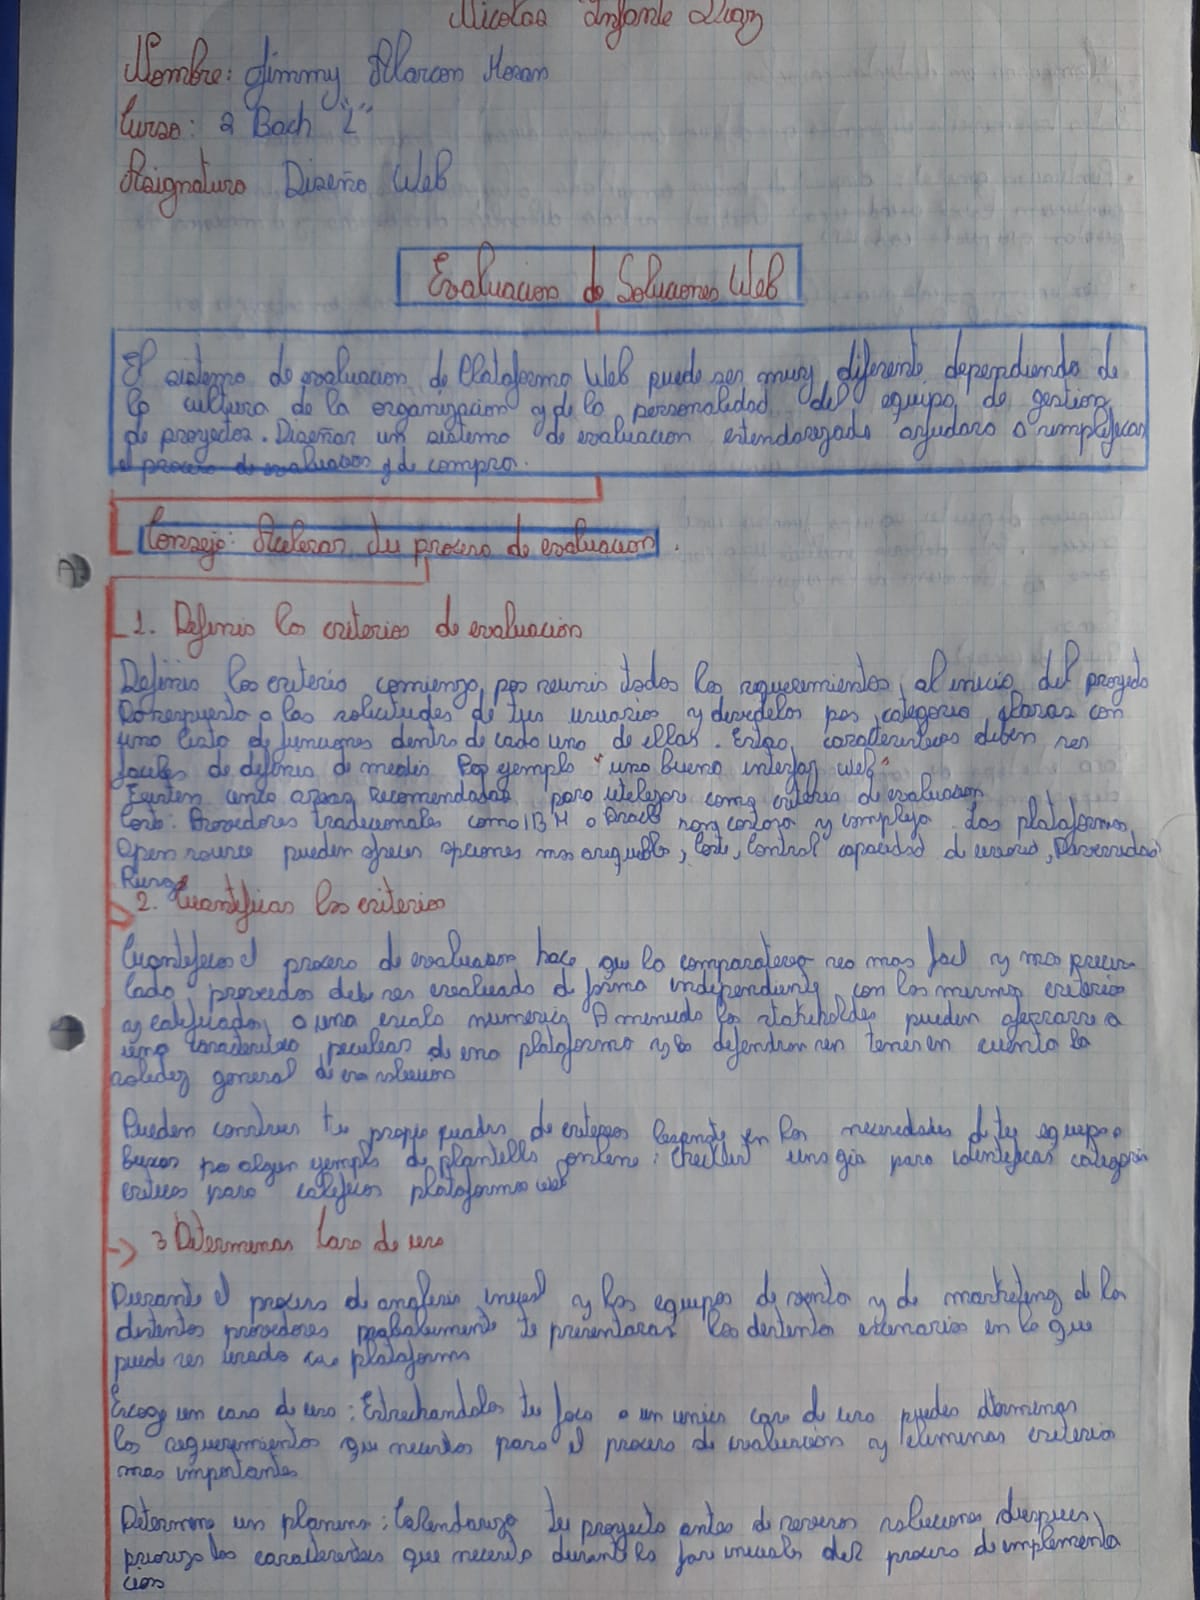 Nicolas Infante Diaz
Nombre: Jimmy Alarcon Moran
Curso: 2 Bach "L"
Asignatura Diseño Web
Evaluacion de Soluciones Web
El sistema de evaluacion de Plataforma Web puede ser muy diferente dependiendo de
la cultura de la organizacion y de la personalidad del equipo de gestion
de proyectos. Diseñar un sistema de evaluacion estandarizado ayudara a simplificar
el proceso de evaluacion y de compra.
Consejo: Acelerar tu proceso de evaluacion.
1. Definir los criterios de evaluacion
Definir los criterio comienza por reunir todos los requerimientos al inicio del proyecto
Da respuesta a las solicitudes de tus usuarios y dividelos por categoria claras con
una lista de funciones dentro de cada una de ellas. Estas caracteristicas deben ser
faciles de definir de medir Por ejemplo "una buena interfaz web"
Existen cinco areas Recomendadas para utilizar como criterio de evaluacion
Costo: Provedores tradicionales como IBM o Oracle son costosa y compleja. Las plataformas
Open source pueden ofrecer opciones mas asequible, Coste, Control capacidad de usuario,
2. Cuantificar los criterios
Cuantificar el proceso de evaluacion hace que la comparativa sea mas facil y mas precisa
Cada provedor debe ser evaluado de forma independiente con los mismos criterios
y calificados a una escala numerica A menudo los stakeholders pueden aferrarse a
una caracteristica peculiar de una plataforma y la defendran sin tener en cuenta la
solidez general de esa solucion
Pueden construir tu propio cuadro de criterios basandote en las necesidades de tu equipo o
buscar por algun ejemplo de plantilla online: Checklist una gia para identificar categoria
criticas para calificar plataformas web
3 Determinar Caso de uso
Durante el proceso de analisis inicial y los equipos de venta y de marketing de los
distintos provedores probablemente te presentaras los distintos escenarios en lo que
puede ser usado esa plataforma
Escoge un caso de uso: Estrechandolos tu foco a un unico caso de uso puedes determinar
los requerimientos que necesitas para el proceso de evaluacion y eliminar criterio
mas importantes
Determina un planing: Calendariza tu proyecto antes de revisar soluciones despues,
prioriza las caracteristicas que necesita durante las fase iniciales del proceso de implementa
cion